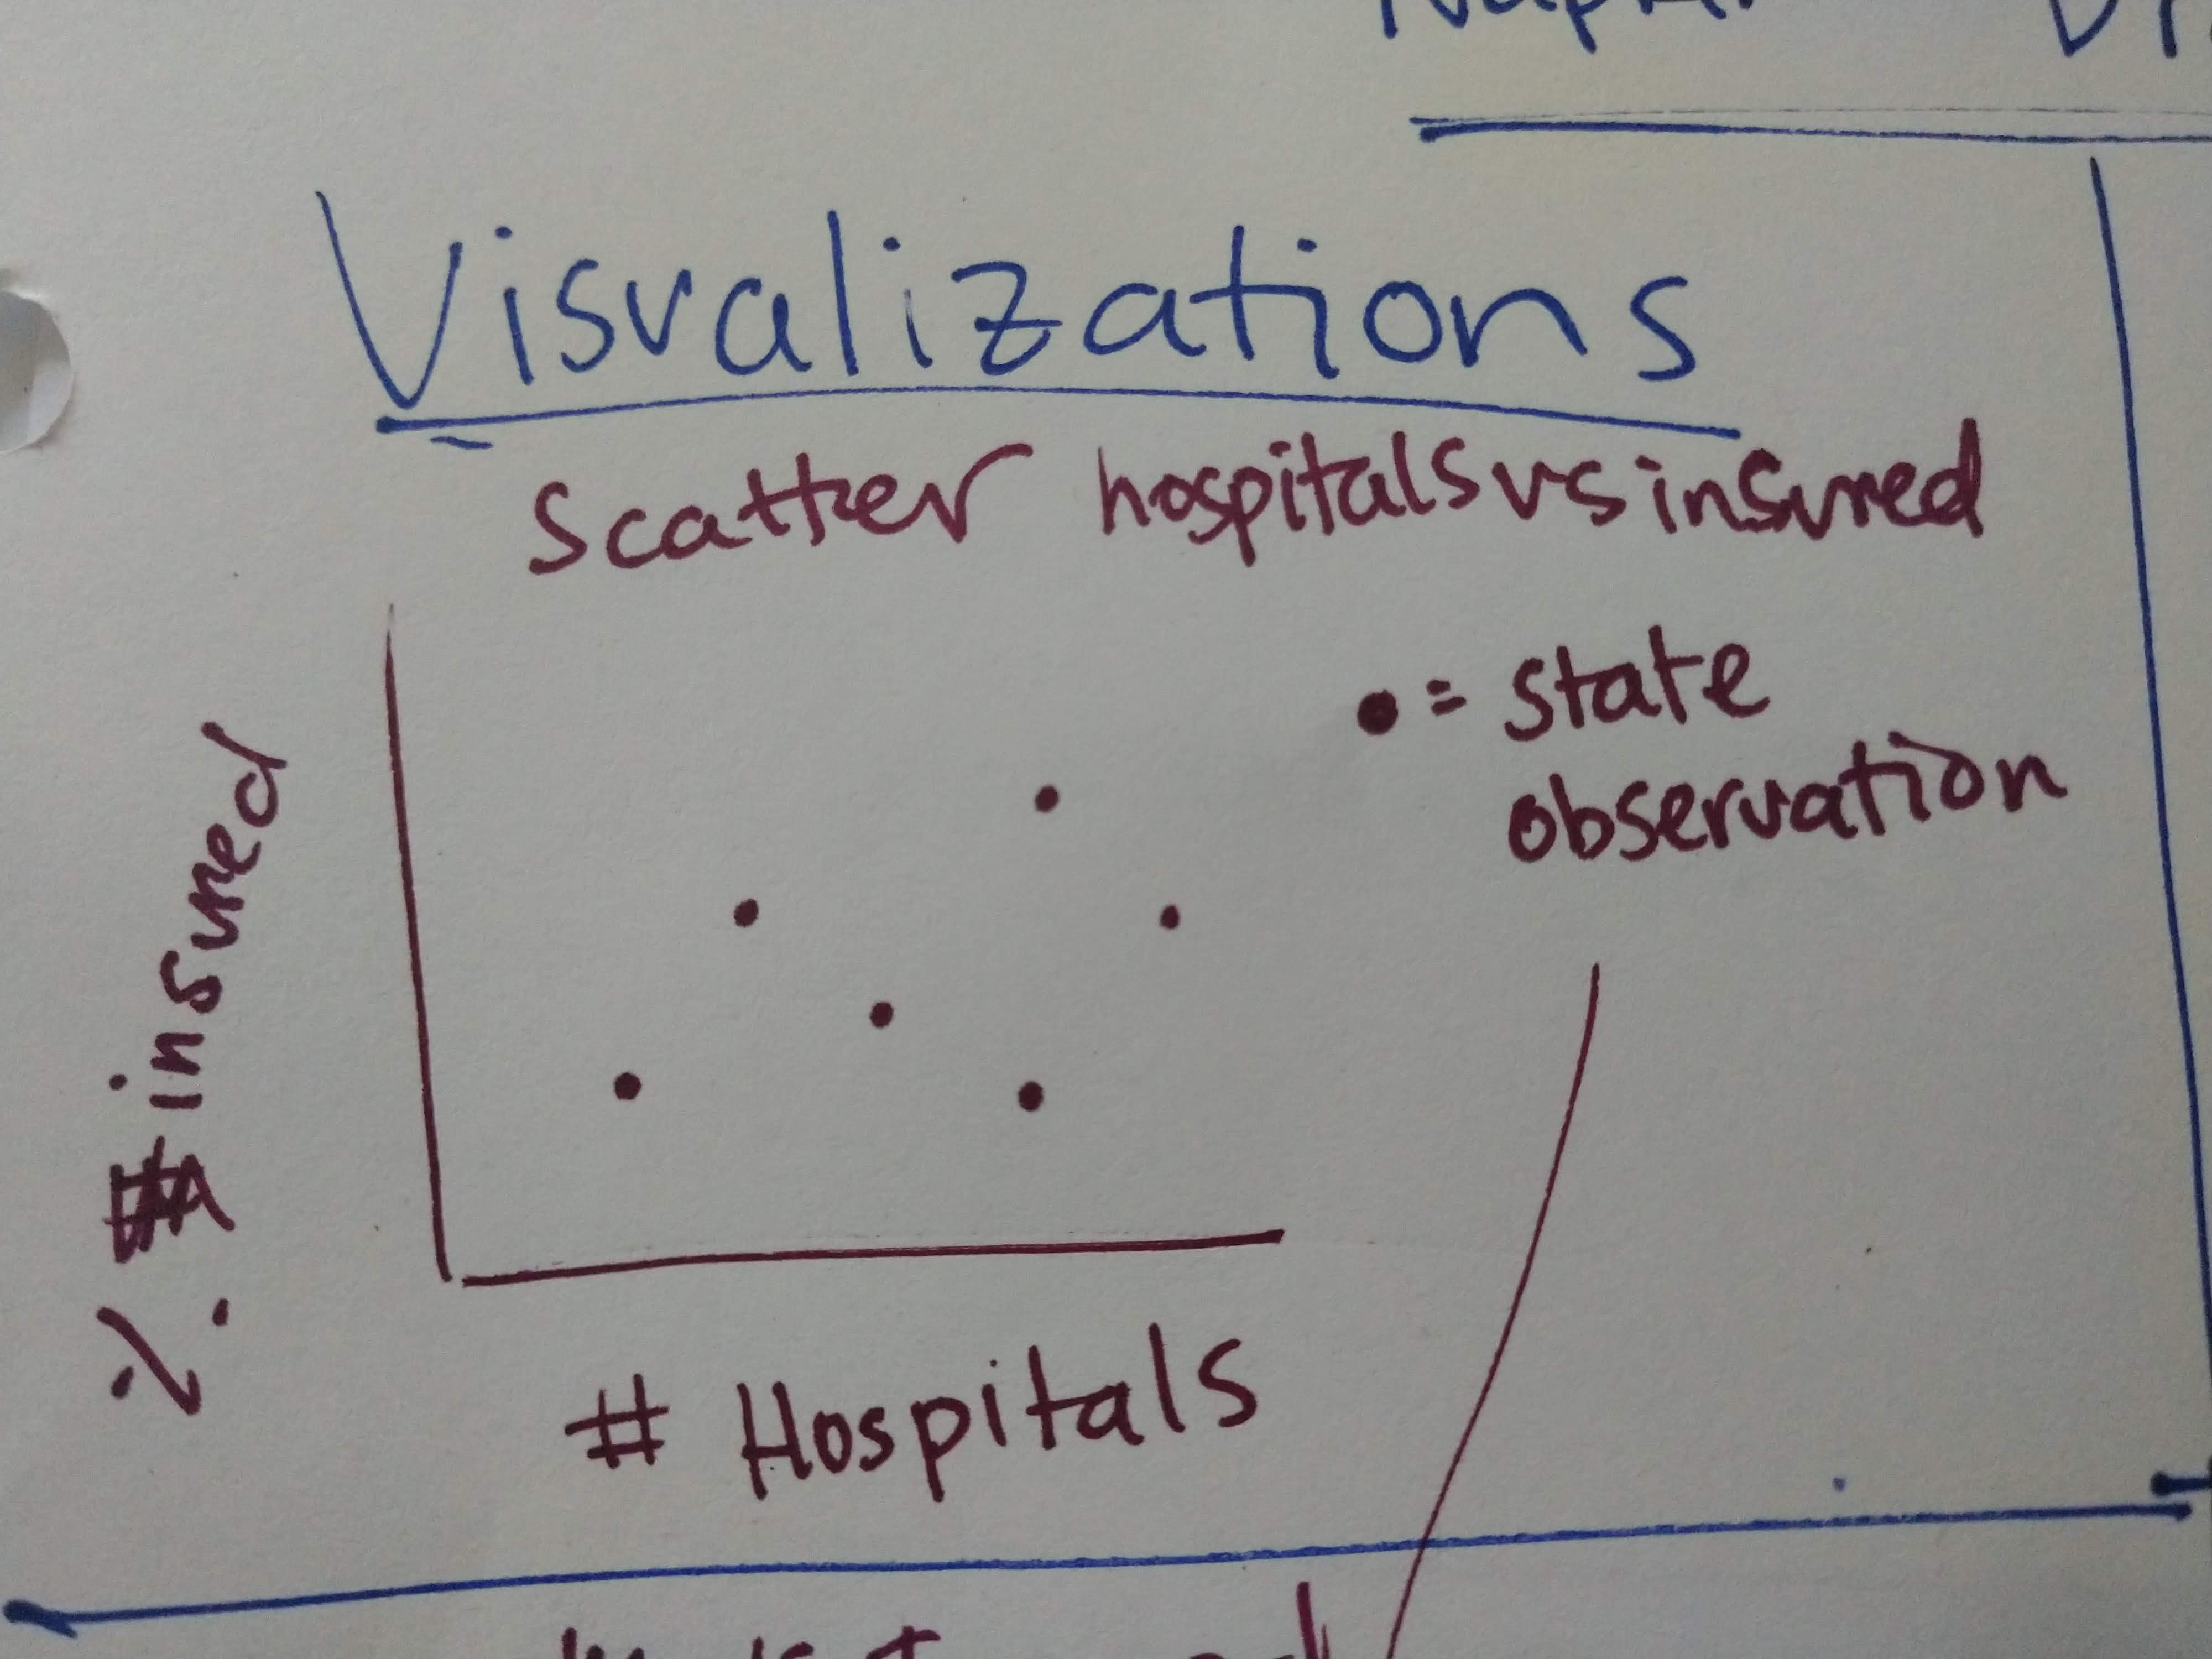 Visualizations
Scatter hospitals vs insured
• = state
observation
% insured
# Hospitals